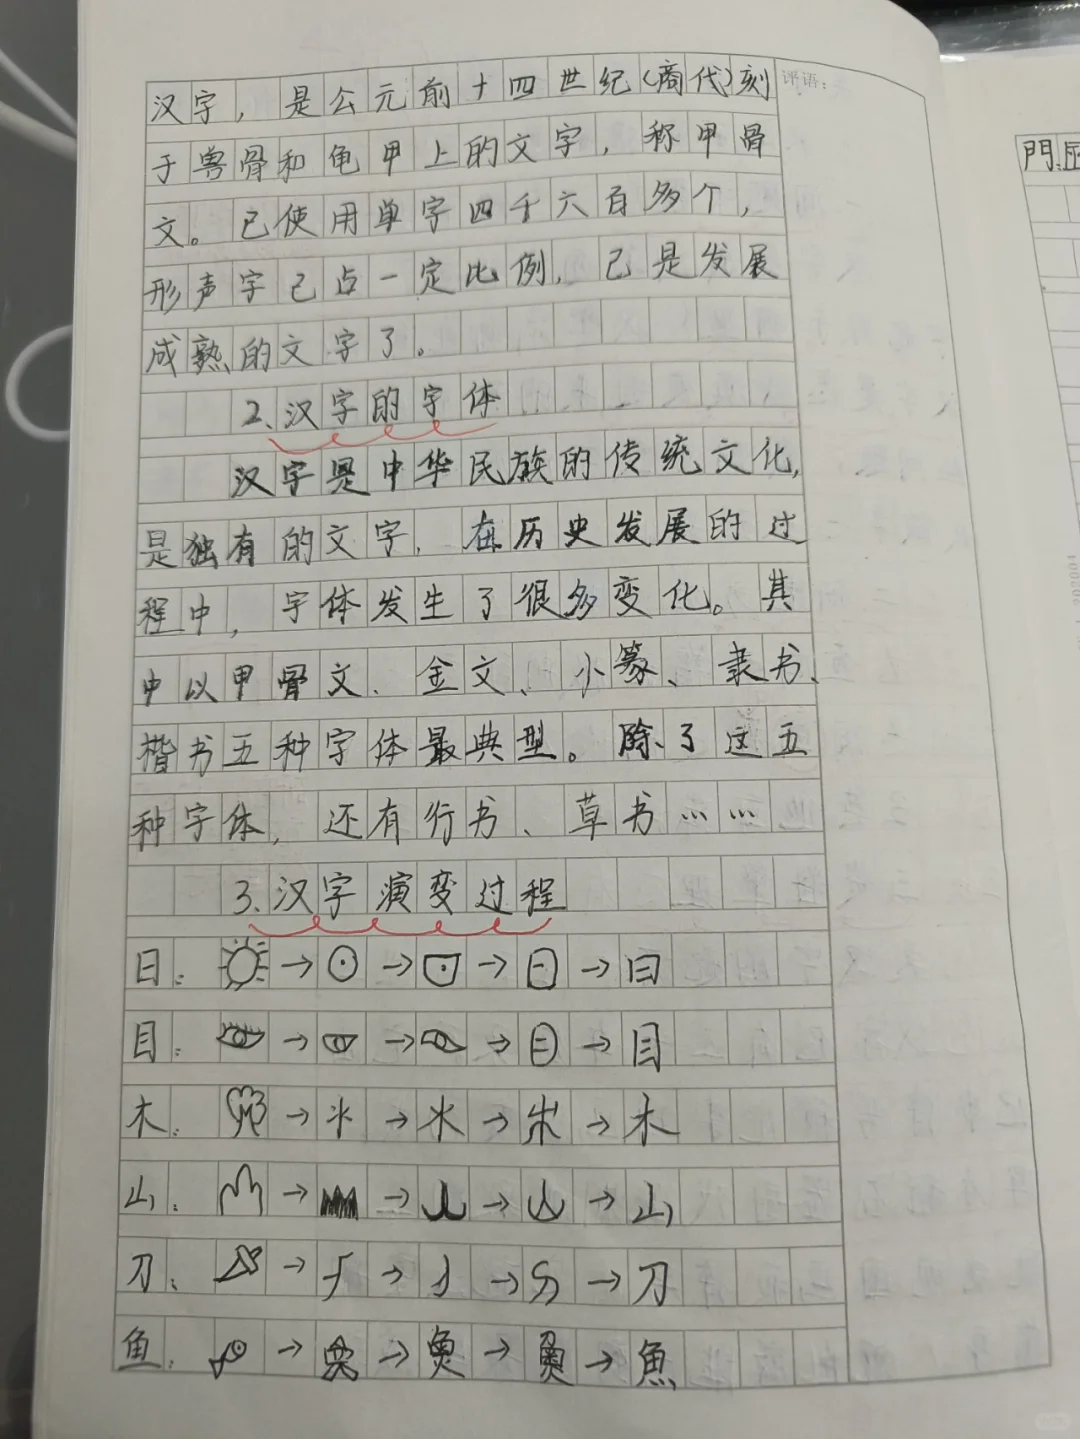 汉字，是公元前十四世纪(商代)刻
于兽骨和龟甲上的文字，称甲骨
文。已使用单字四千六百多个，
形声字已占一定比例，已是发展
成熟的文字了。
2、汉字的字体
汉字是中华民族的传统文化，
是独有的文字，在历史发展的过
程中，字体发生了很多变化。其
中以甲骨文、金文、小篆、隶书、
楷书五种字体最典型。除了这五
种字体，还有行书、草书……
3、汉字演变过程
日： → → → →日
目： → → → →目
木： → → → →木
山： → → → →山
刀： → → → →刀
鱼： → → → →魚
评语：
門